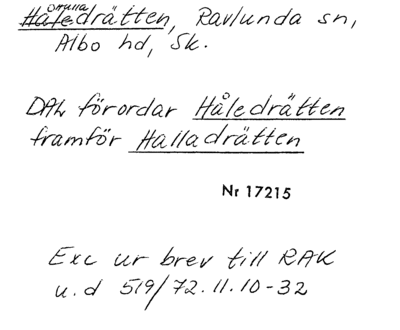 Håledrätten, Ravlunda sn,
Albo hd, Sk.
DAL förordar Håledrätten
framför Halladrätten
Nr 17215
Exc ur brev till RAK
u.d 519/72.11.10-32